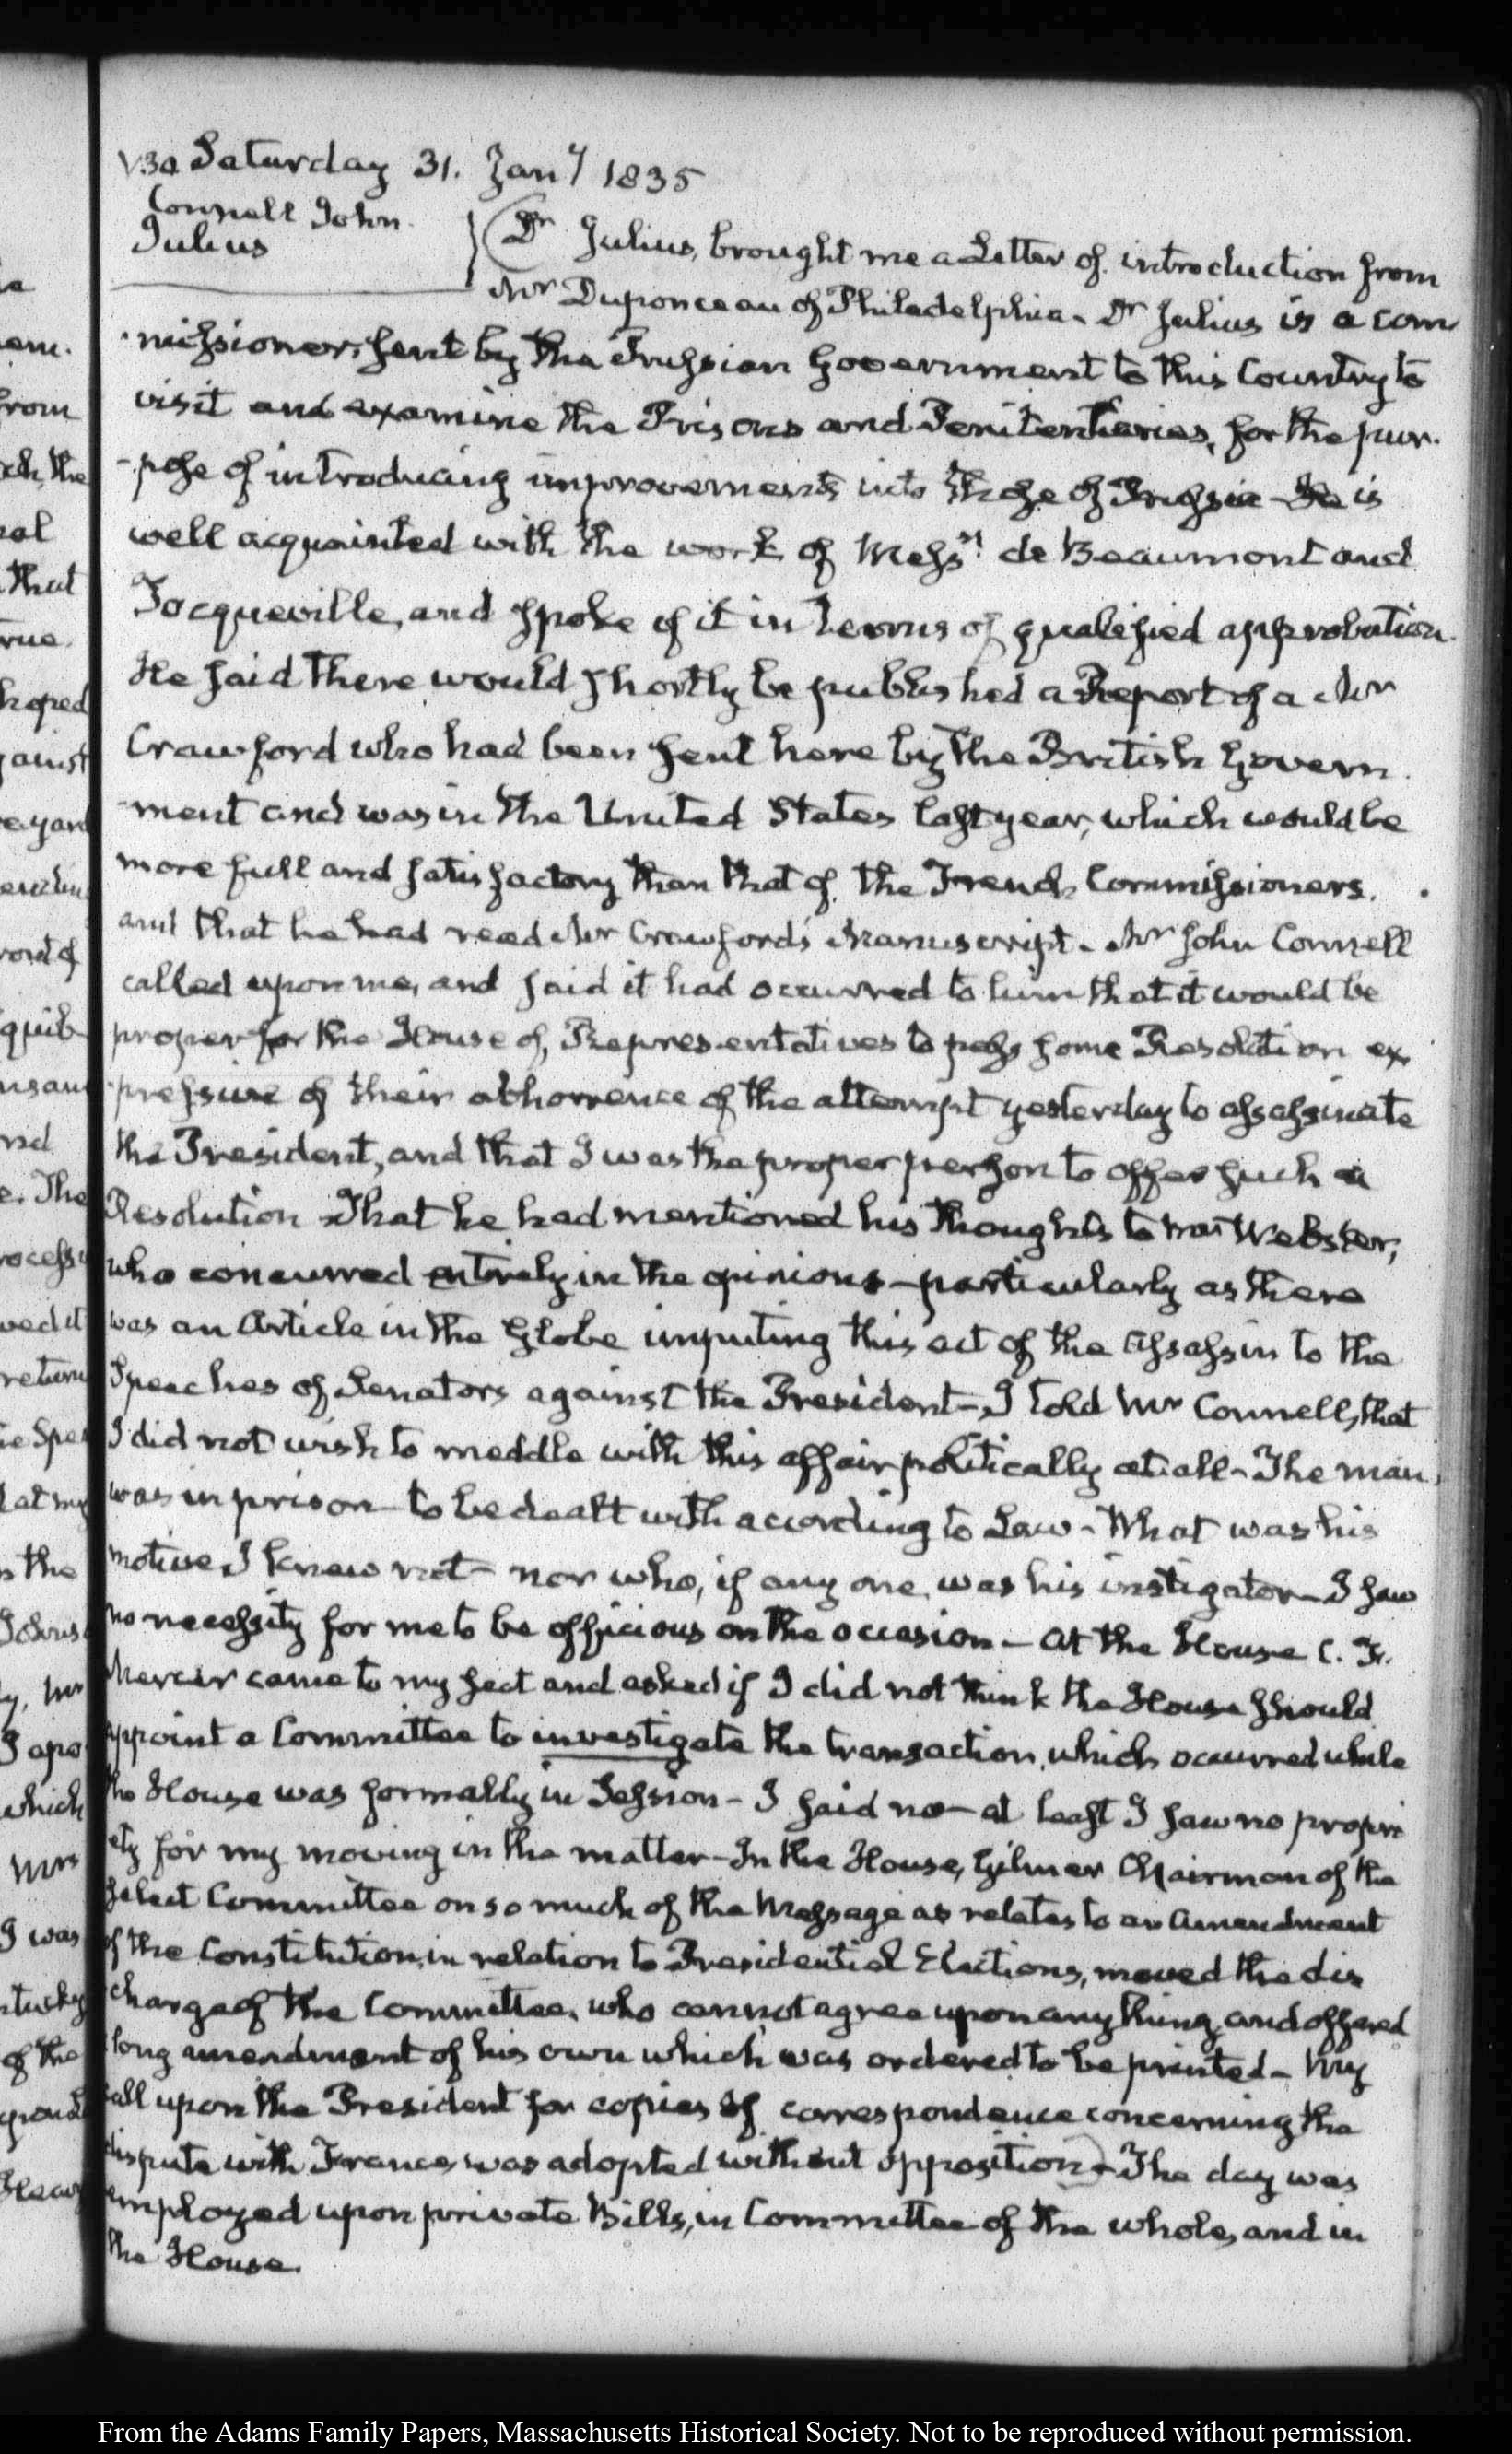 V.30 Saturday 31. Jany 1835
Connell John.
Julius
Dr Julius, brought me a Letter of introduction from
Mr Duponceau of Philadelphia. Dr Julius is a com
missioner, sent by the Prussian Government to this Country to
visit and examine the Prisons and Penitentiaries, for the pur-
-pose of introducing improvements into those of Prussia - He is
well acquainted with the work of Messrs de Beaumont and
Tocqueville, and spoke of it in terms of qualified approbation.
He said there would shortly be published a Report of a Mr
Crawford who had been sent here by the British Govern
-ment and was in the United States last year, which would be
more full and satisfactory than that of the French Commissioners.
and that he had read Mr Crawford's Manuscript - Mr John Connell
called upon me, and said it had occurred to him that it would be
proper for the House of Representatives to pass some Resolution ex
-pressive of their abhorrence of the attempt yesterday to assassinate
the President, and that I was the proper person to offer such a
Resolution - That he had mentioned his thoughts to Mr Webster,
who concurred entirely in the opinions - particularly as there
was an Article in the Globe imputing this act of the Assassin to the
Speeches of Senators against the President - I told Mr Connell, that
I did not wish to meddle with this affair politically at all - The man
was in prison - to be dealt with according to Law - What was his
motive I knew not - nor who, if any one, was his instigator - I saw
no necessity for me to be officious on the occasion - At the House C. F.
Mercer came to my seat and asked if I did not think the House should
appoint a Committee to investigate the transaction, which occurred while
the House was formally in Session - I said no - at least I saw no propri
ety for my moving in the matter - In the House, Gilmer Chairman of the
Select Committee on so much of the Message as relates to an Amendment
of the Constitution, in relation to Presidential Elections, moved the dis
charge of the Committee, who cannot agree upon any thing, and offered
long amendment of his own which was ordered to be printed - My
call upon the President for copies of correspondence concerning the
dispute with France was adopted without opposition) - The day was
employed upon private Bills, in Committee of the whole, and in
the House.
From the Adams Family Papers, Massachusetts Historical Society. Not to be reproduced without permission.